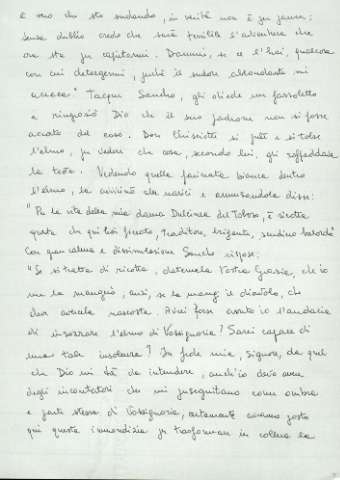 e ora che sto sudando, in verità non è per paura;
senza dubbio credo che sarà terribile l'avventura che
ora sta per capitarmi. Dammi, se ce l'hai, qualcosa
con cui detergermi, perché il sudore abbondante mi
acceca." Tacque Sancho, gli diede un fazzoletto
e ringraziò Dio che il suo padrone non si fosse
accorto del caso. Don Chisciotte si pulì e si tolse
l'elmo, per vedere che cosa, secondo lui, gli raffreddasse
la testa. Vedendo quella farinata bianca dentro
l'elmo, la avvicinò alle narici e annusandola disse:
"Per la vita della mia dama Dulcinea del Toboso, è ricotta
questa che qui hai messo, traditore, brigante, scudiero
Con gran calma e dissimulazione Sancho rispose:
"Se si tratta di ricotta, datemela Vostra Grazia, che io
me la mangio, anzi, se la mangi il diavolo, che
deve averla nascosta. Avrei forse avuto io l'audacia
di insozzare l'elmo di Vossignoria? Sarei capace di
una tale insolenza? In fede mia, signore, da quel
che Dio mi fa intendere, anch'io devo avere
degli incantatori che mi perseguitano come ombra
e parte stessa di Vossignoria, certamente avranno posto
qui questa immondizia per trasformare in collera la